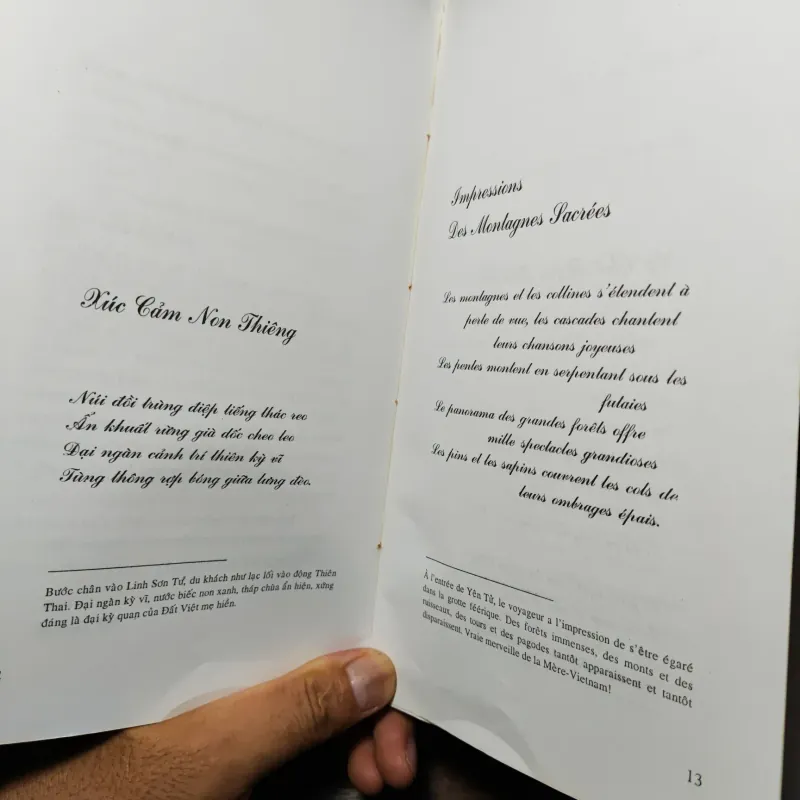 Xúc Cảm Non Thiêng
Núi đồi trùng điệp tiếng thác reo
Ẩn khuất rừng già dốc cheo leo
Đại ngàn cảnh trí thiên kỳ vĩ
Tùng thông rợp bóng giữa lưng đèo.
Bước chân vào Linh Sơn Tự, du khách như lạc lối vào động Thiên
Thai. Đại ngàn kỳ vĩ, nước biếc non xanh, tháp chùa ẩn hiện, xứng
đáng là đại kỳ quan của Đất Việt mẹ hiền.
Impressions
Des Montagnes Sacrées
Les montagnes et les collines s'étendent à
perte de vue, les cascades chantent
leurs chansons joyeuses
Les pentes montent en serpentant sous les
futaies
Le panorama des grandes forêts offre
mille spectacles grandioses
Les pins et les sapins couvrent les cols de
leurs ombrages épais.
À l'entrée de Yên Tử, le voyageur a l'impression de s'être égaré
dans la grotte féérique. Des forêts immenses, des monts et des
ruisseaux, des tours et des pagodes tantôt apparaissent et tantôt
disparaissent. Vraie merveille de la Mère-Vietnam!
13